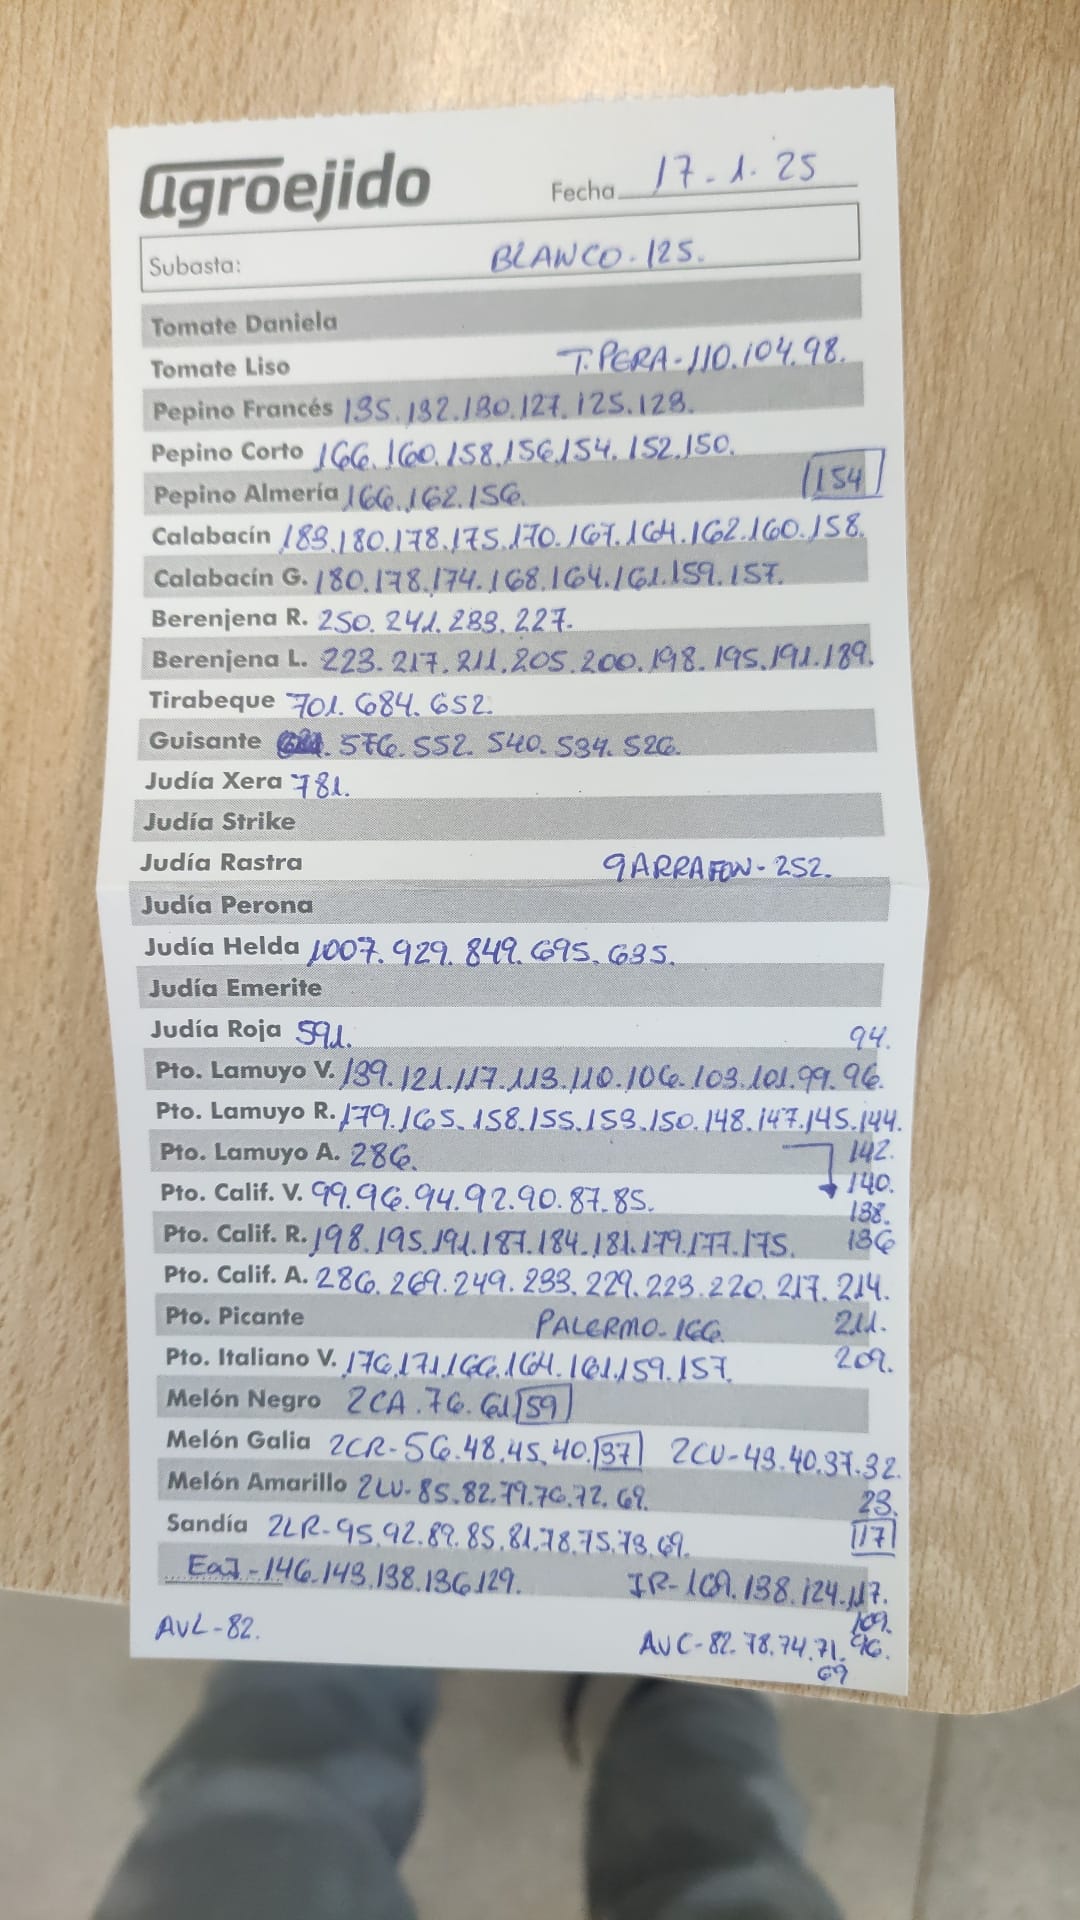 agroejido
Fecha 17.1.25
Subasta: BLANCO.125.
Tomate Daniela
Tomate Liso T.PERA-110.104.98.
Pepino Francés 135.132.130.127.125.123.
Pepino Corto 166.160.158.156.154.152.150.
Pepino Almería 166.162.156. 154
Calabacín 183.180.178.175.170.167.164.162.160.158.
Calabacín G. 180.178.174.168.164.161.159.157.
Berenjena R. 250.241.233.227.
Berenjena L. 223.217.211.205.200.198.195.191.189.
Tirabeque 701.684.652.
Guisante 576.552.540.534.526.
Judía Xera 781.
Judía Strike
Judía Rastra GARRAFON-252.
Judía Perona
Judía Helda 1007.929.849.695.635.
Judía Emerite
Judía Roja 591. 94.
Pto. Lamuyo V. 139.121.117.113.110.106.103.101.99.96.
Pto. Lamuyo R. 179.165.158.155.153.150.148.147.145.144.
Pto. Lamuyo A. 286. 142.
140.
Pto. Calif. V. 99.96.94.92.90.87.85. 138.
Pto. Calif. R. 198.195.191.187.184.181.179.177.175. 136
Pto. Calif. A. 286.269.249.233.229.223.220.217.214.
Pto. Picante PALERMO-166. 211.
Pto. Italiano V. 176.171.166.164.161.159.157. 209.
Melón Negro 2CA.76.61 59
Melón Galia 2CR-56.48.45.40. 37 2CU-43.40.37.32.
Melón Amarillo 2LV-85.82.79.76.72.69. 23.
Sandía 2LR-95.92.89.85.81.78.75.73.69. 17
146.143.138.136.129. IR-169.138.124.117.
109.
AVL-82. AVC-82.78.74.71. 96.
69